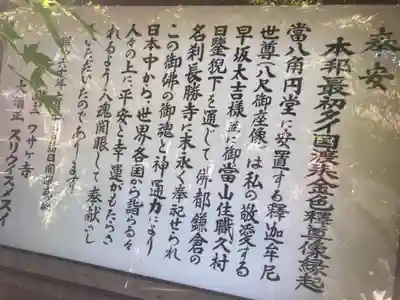 泰安
本邦最初タイ国渡来金色釋尊像縁起
當八角円堂に安置する釋迦牟尼
世尊八尺御座像は私の敬愛する
早坂太吉様並に御當山住職久村
日鑒猊下を通じて佛都鎌倉の
名刹長勝寺に末永く奉祀せられ
この御佛の御魂と神通力により
日本中から、世界各国から詣らる々
人々の上に平安と幸運がもたらさ
れるよう入魂開眼して奉献さし
ていただいたのであります
ワサケ寺
大僧正 スリウィスメスイ